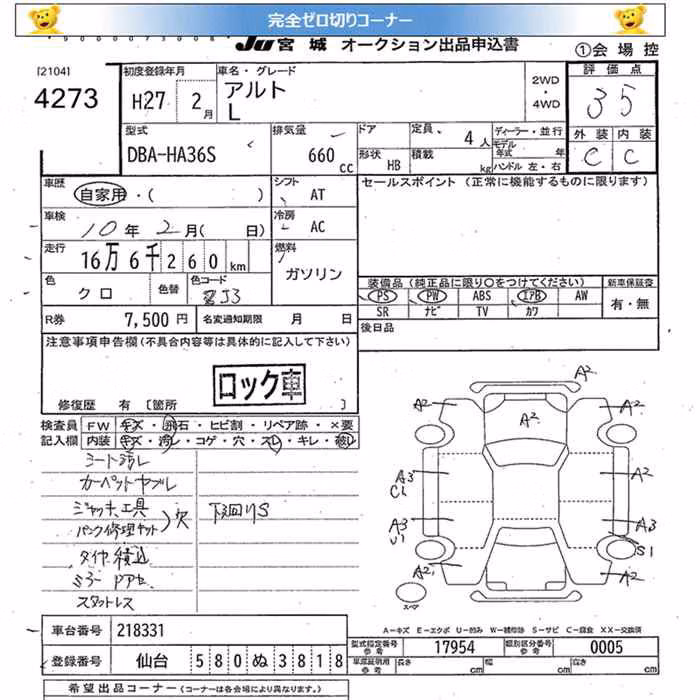 完全ゼロ切りコーナー
JU宮城 オークション出品申込書
①会場控
[2104]
4273
初度登録年月
H27 2月
車名・グレード
アルト
L
2WD
・
4WD
評価点
35
外装 内装
C C
型式
DBA-HA36S
排気量
660 cc
ドア
形状 HB
定員 4人
積載 kg
ディーラー・並行
モデル年式 年
ハンドル 左・右
車歴
自家用・( )
シフト
AT
セールスポイント (正常に機能するものに限ります)
車検
10年2月( 日)
冷房
AC
走行
16万6千260km
燃料
ガソリン
色
クロ
色替
色コード
ZJ3
装備品 (純正品に限り○をつけてください)
新車保証書
PS PW ABS エアB AW
SR ナビ TV カワ
有・無
R券 7,500円
名変通知期限 月 日
後日品
注意事項申告欄(不具合内容等は具体的に記入して下さい)
ロック車
修復歴 有 [箇所 ]
検査員記入欄
FW キズ・飛石・ヒビ割・リペア跡・×要
内装 キズ・汚レ・コゲ・穴・スレ・キレ・破レ
シート汚レ
カーペットヤブレ
ジャッキ、工具
パンク修理キット
欠
下回りS
タイヤ積込
ミラー ドアセ
スタットレス
A2
A2
A2
A2
A3
C1
A2
A3
U1
A3
S1
A2
A2
スペア
A-キズ E-エクボ U-凹み W-補修跡 S-サビ C-腐食 XX-交換済
車台番号 218331
型式指定番号参考 17954
類別区分番号参考 0005
登録番号 仙台 580 ぬ 3818
車庫証明用参考 長さ cm 幅 cm 高さ cm
希望出品コーナー (コーナーは各会場により異なります。)